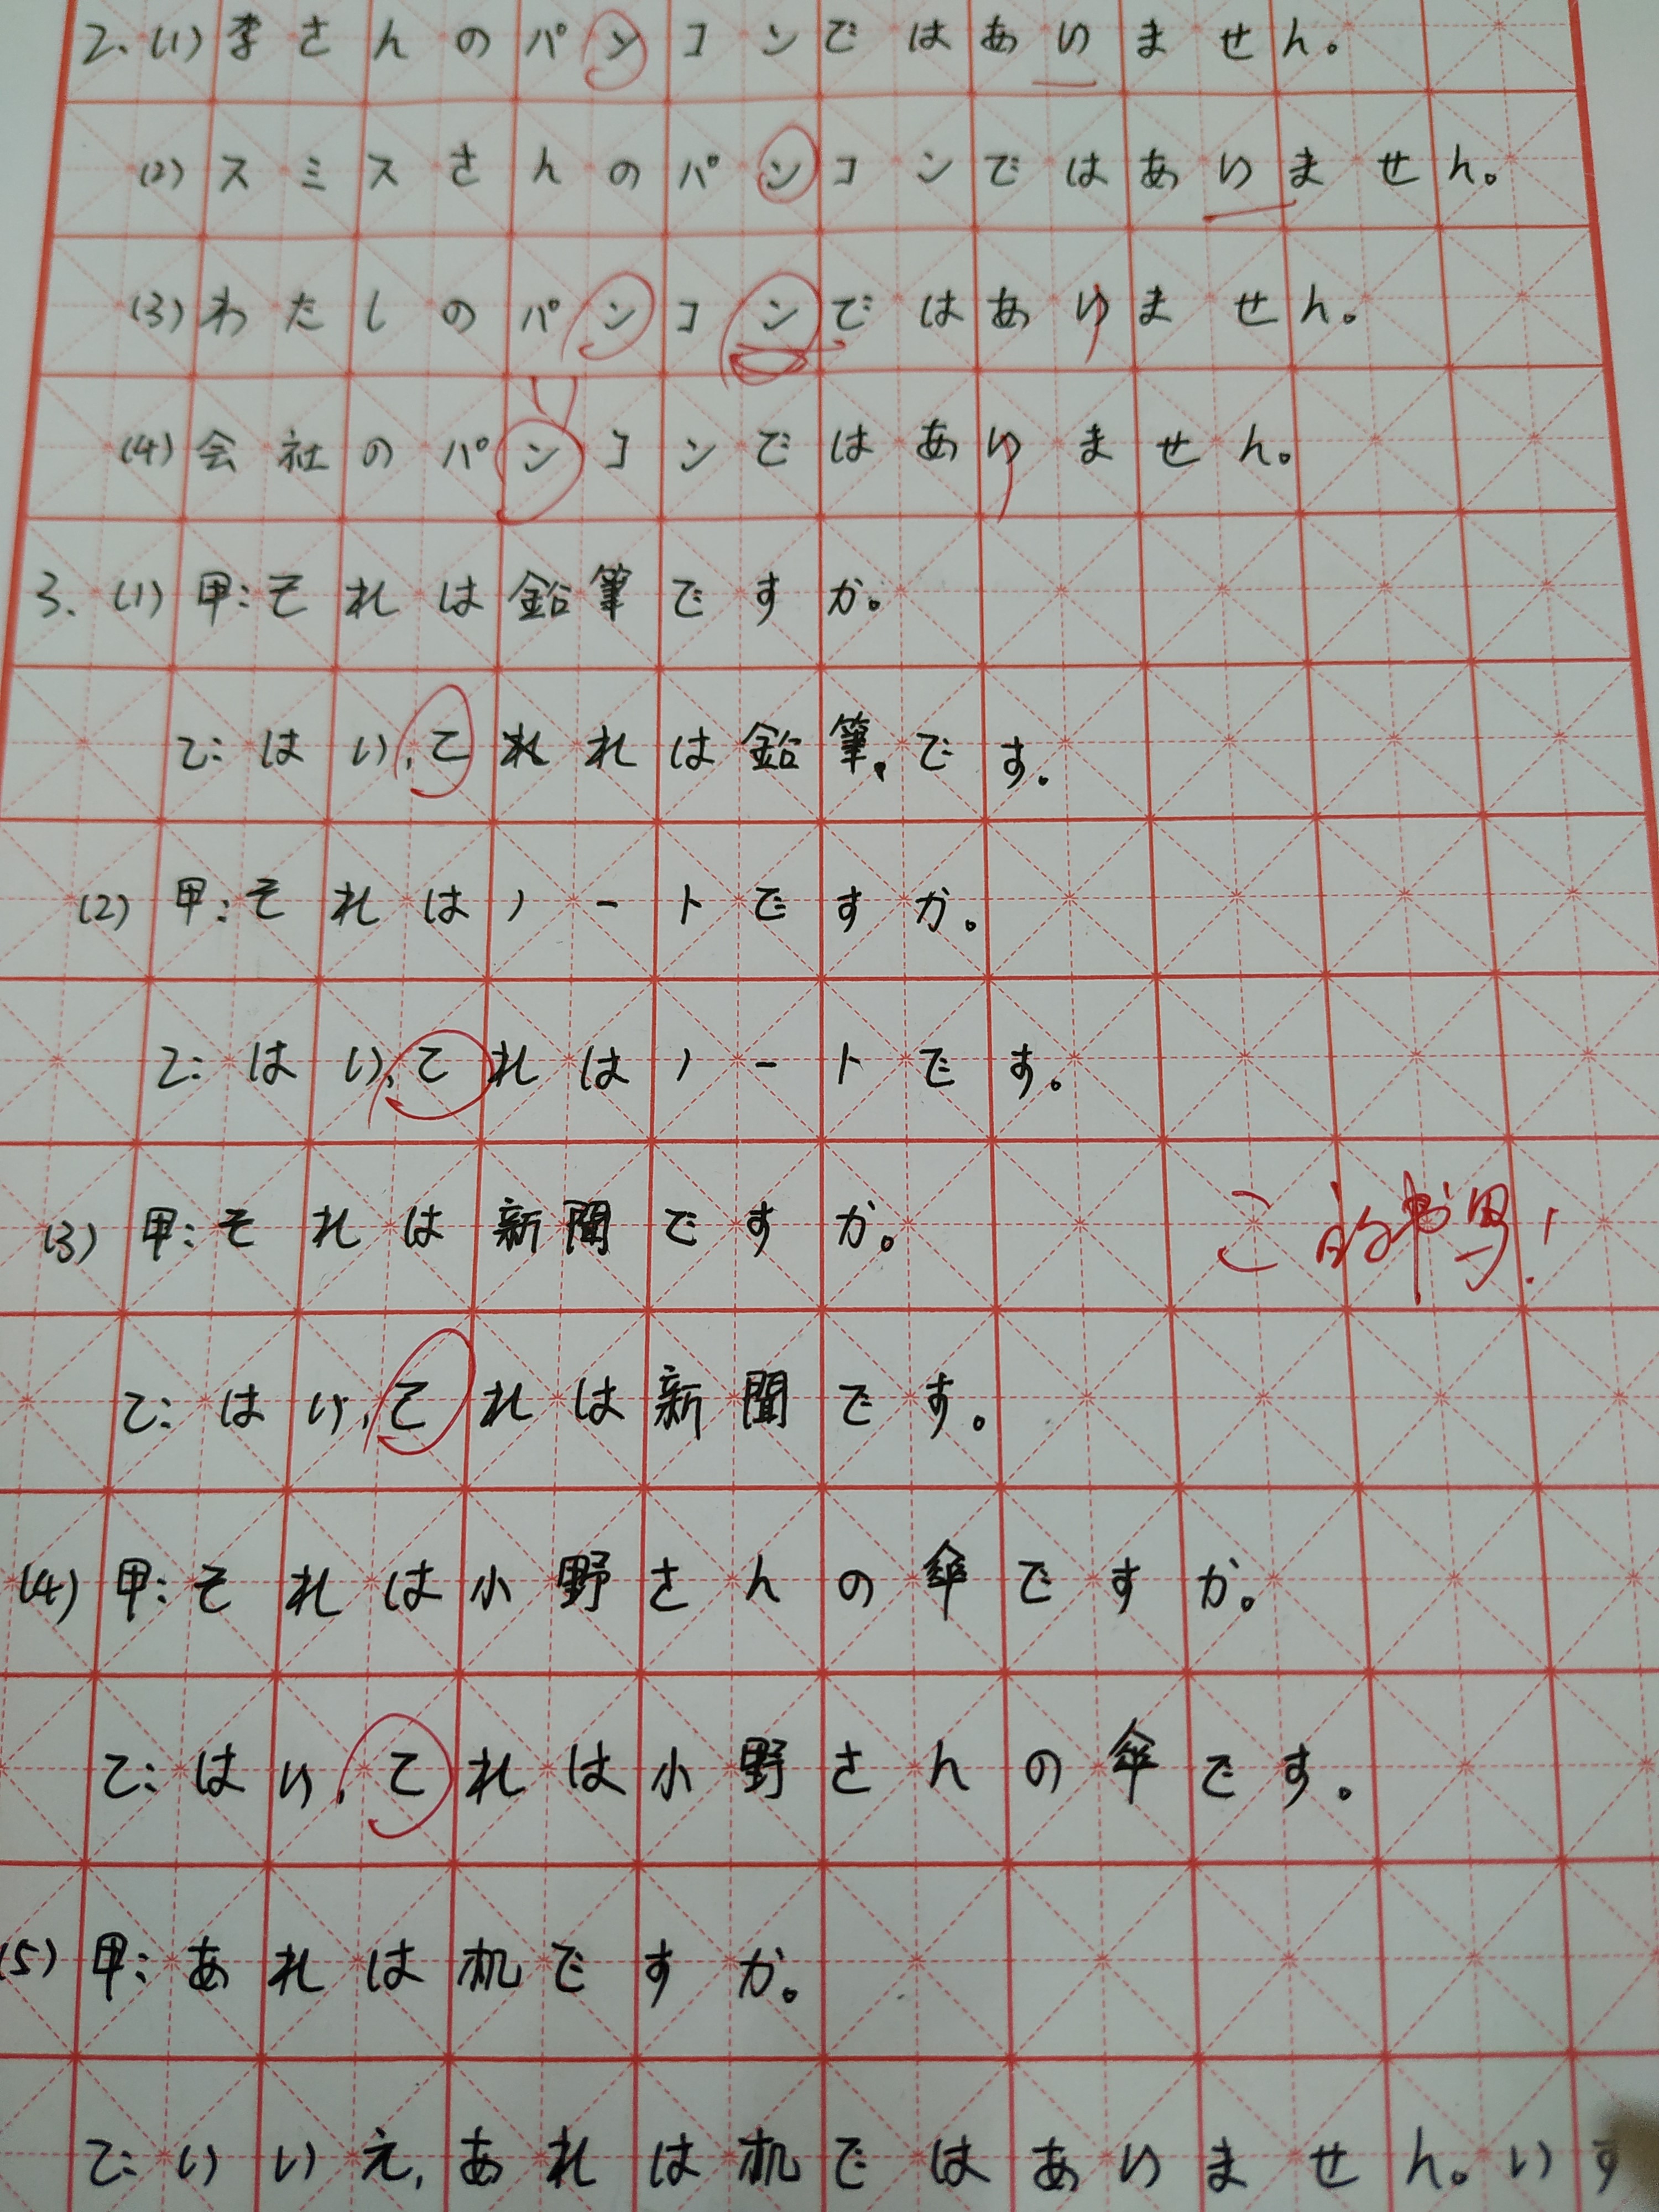 2.(1)李さんのパンコンではあいません。
(2)スミスさんのパンコンではあいません。
(3)わたしのパンコンではありません。
(4)会社のパンコンではありません。
3.(1)甲:それは鉛筆ですか。
乙:はい,てれは鉛筆です。
(2)甲:それはノートですか。
乙:はい,てれはノートです。
(3)甲:それは新聞ですか。
こ的书写!
乙:はい,てれは新聞です。
(4)甲:それは小野さんの傘ですか。
乙:はい,てれは小野さんの傘です。
(5)甲:あれは机ですか。
乙:いいえ,あれは机ではあいません。いす